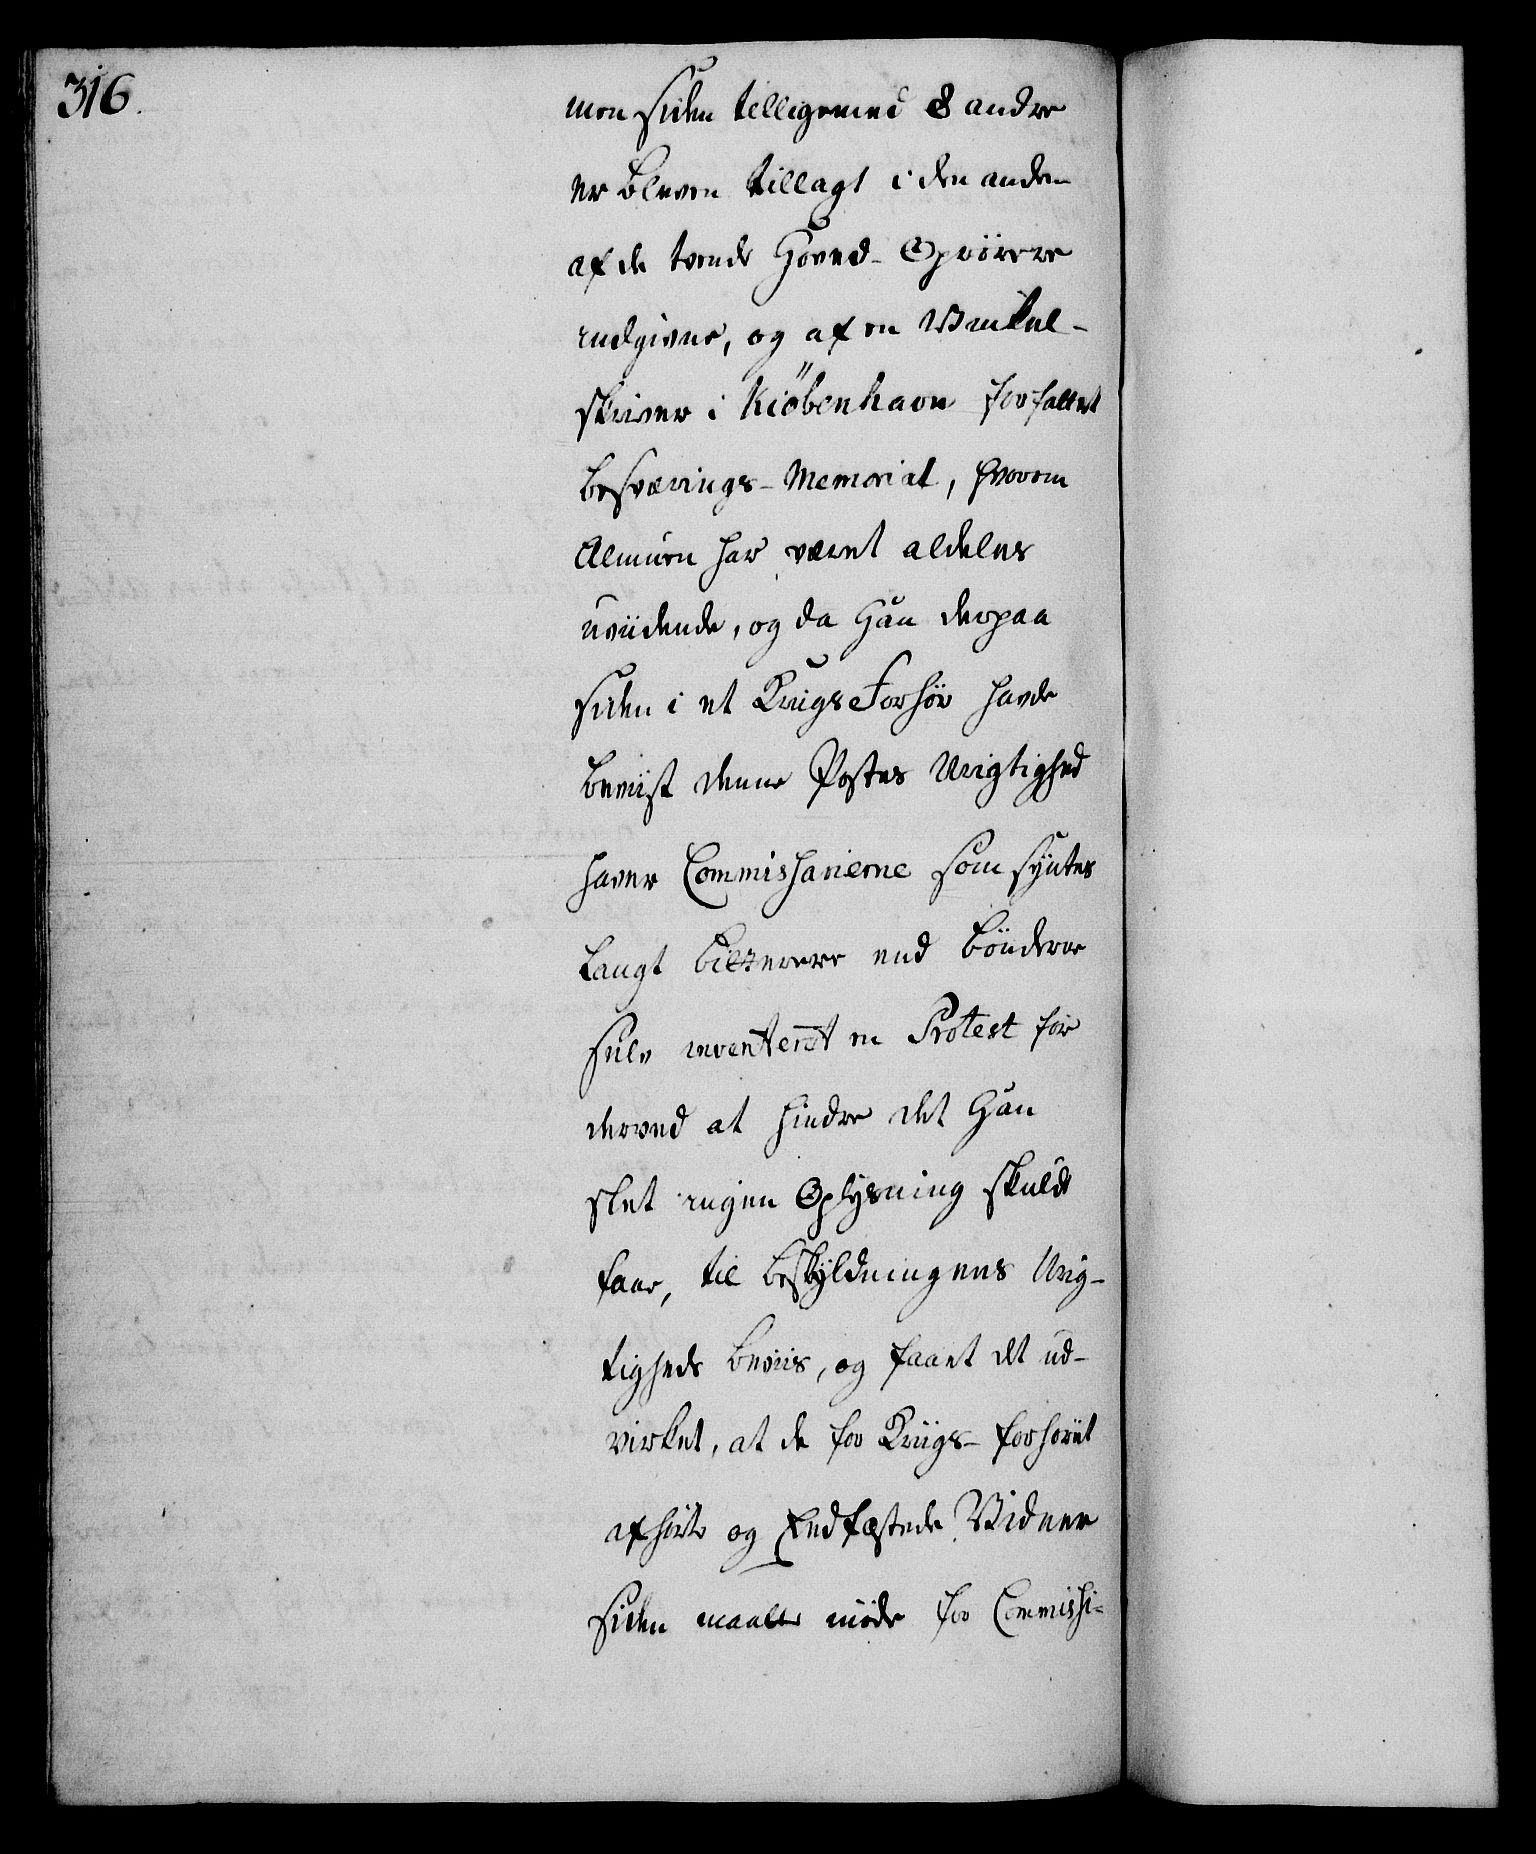 316.
men siden tilligemed 8 andre
er bleven tillagt i den anden
af de tvende Hoved-Oprörere
indgivne, og af en Vinkel-
skriver i Kiöbenhavn forfattet
besværings-Memorial, hvorom
Almuen har været aldeles
uviidende, og da Han derpaa
siden i et KrigsForhör havde
beviist denne Postes Urigtighed
haver Commissarierne som syntes
langt bitterere end bönderne
selv inventeret en Protest for
derved at hindre det Han
slet ingen Oplysning skulde
faae, til beskyldningens Urig-
tigheds beviis, og faaet det ud-
virket, at de for Krigs-forhöret
afhörte og Eedfæstede Vidner
siden maatte möde for Commissi-